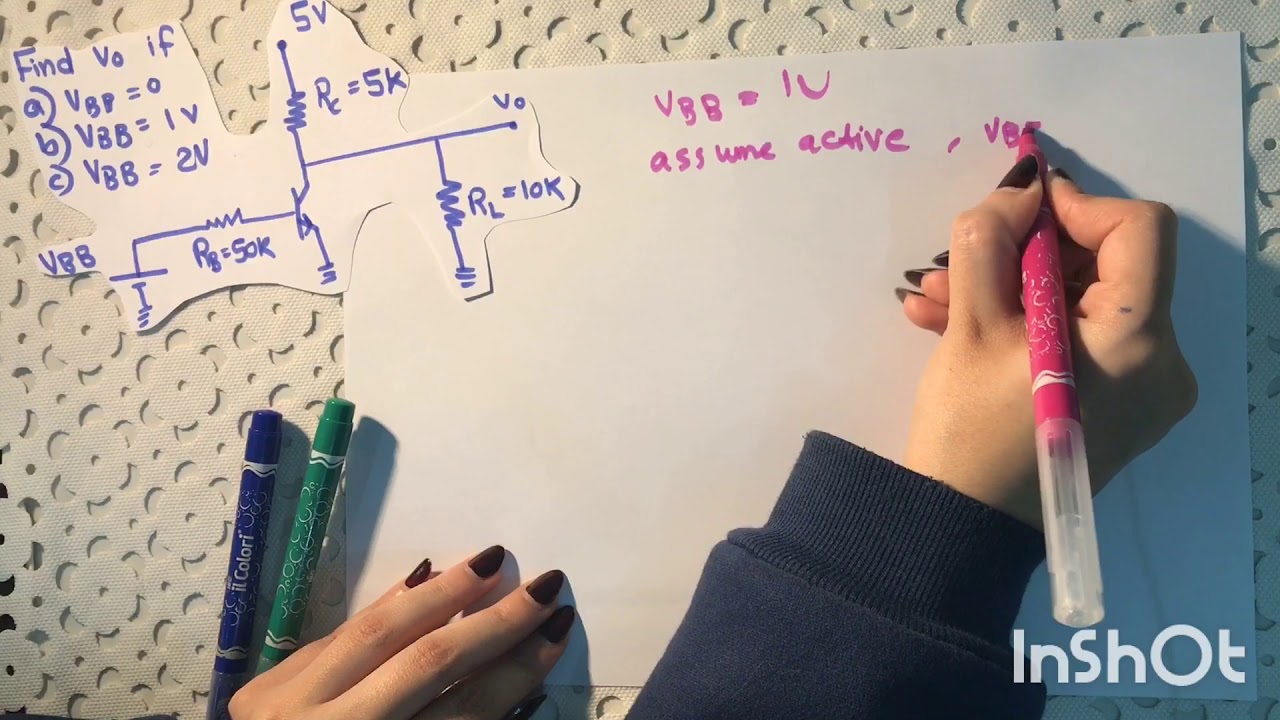 Find Vo if
a) VBB = 0
b) VBB = 1V
c) VBB = 2V
5V
RC = 5K
Vo
RL = 10K
RB = 50K
VBB
VBB = 1V
assume active , VBE
il Colori
InShOt